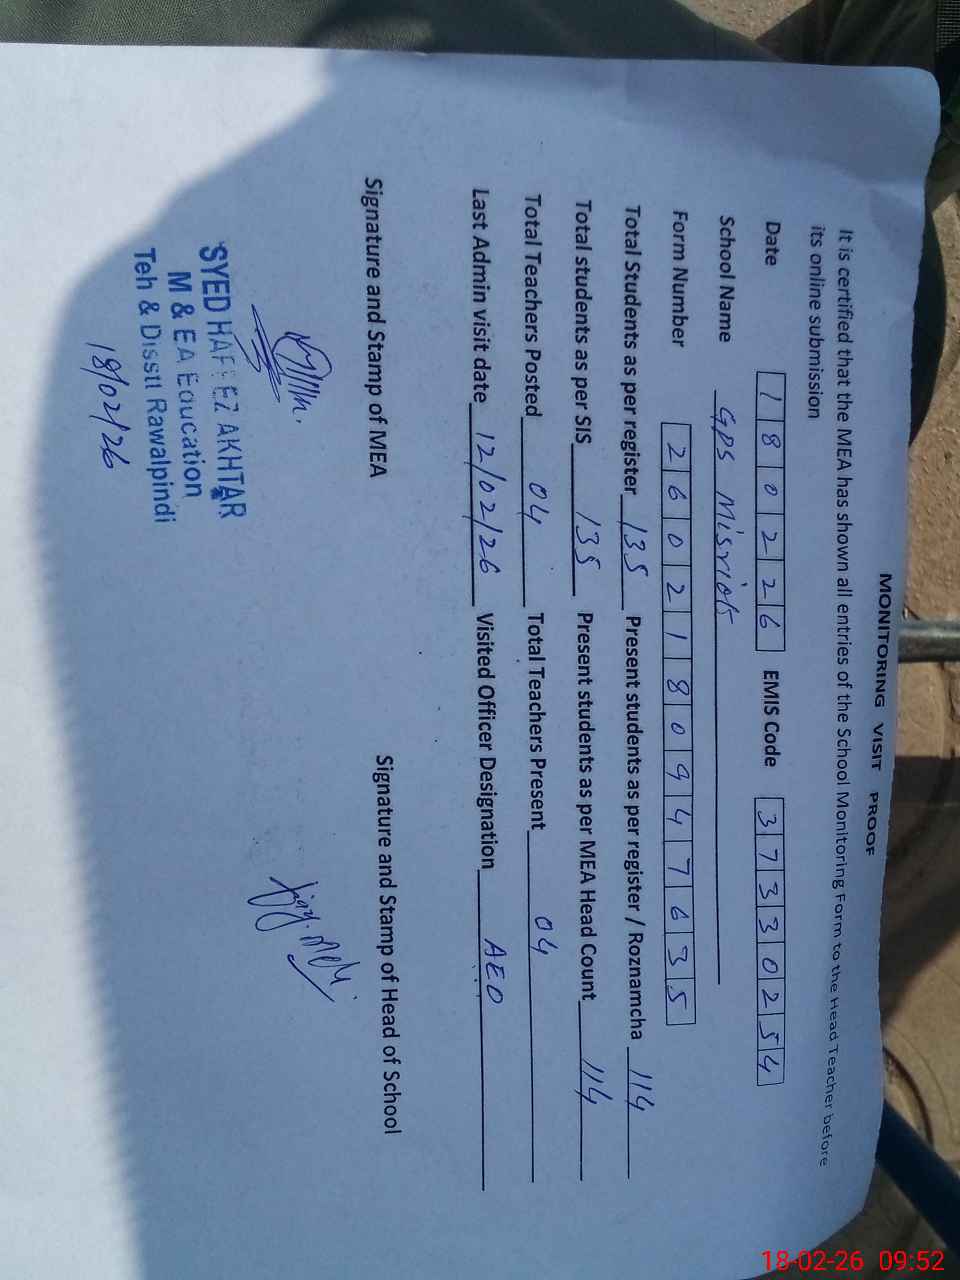 MONITORING VISIT PROOF
It is certified that the MEA has shown all entries of the School Monitoring Form to the Head Teacher before
its online submission
Date 180226 EMIS Code 37330254
School Name GPS Misriot
Form Number 2602180947635
Total Students as per register 135 Present students as per register / Roznamcha 114
Total students as per SIS 135 Present students as per MEA Head Count 114
Total Teachers Posted 04 Total Teachers Present 04
Last Admin visit date 12/02/26 Visited Officer Designation AEO
Signature and Stamp of MEA Signature and Stamp of Head of School
SYED HAFEEZ AKHTAR
M & EA Education
Teh & Disstt Rawalpindi
18/02/26
18-02-26 09:52